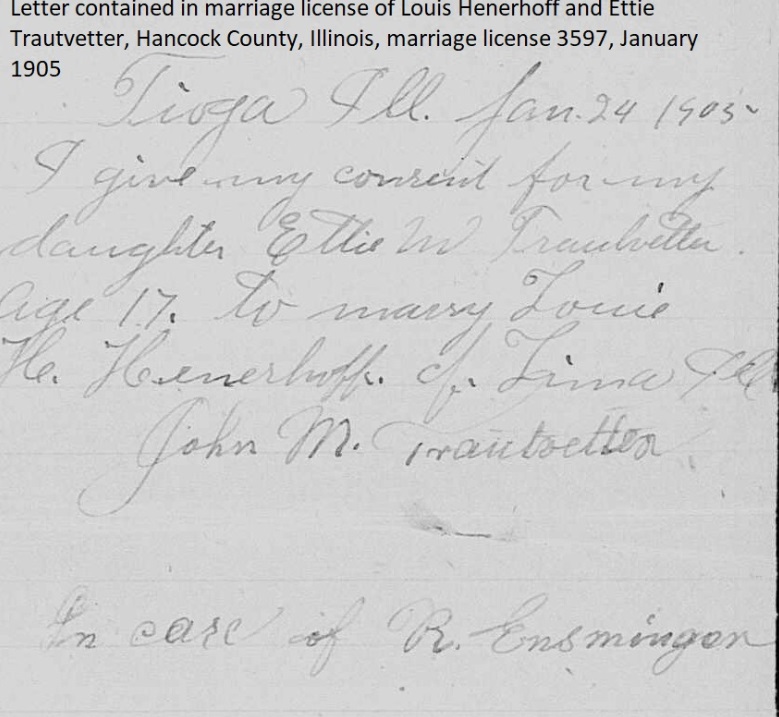 Letter contained in marriage license of Louis Henerhoff and Ettie
Trautvetter, Hancock County, Illinois, marriage license 3597, January
1905
Tioga Ill. Jan. 24 1905
I give my consent for my
daughter Ettie M Trautvetter.
Age 17. to marry Louie
H. Henerhoff. of. Lima Ill
John M. Trautvetter
In care of R. Ensminger